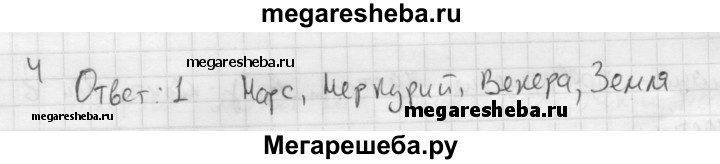 megaresheba.ru
4
megaresheba.ru
Ответ: 1 Марс, Меркурий, Венера, Земля
megaresheba.ru
megaresheba.ru
Мегарешеба.ру